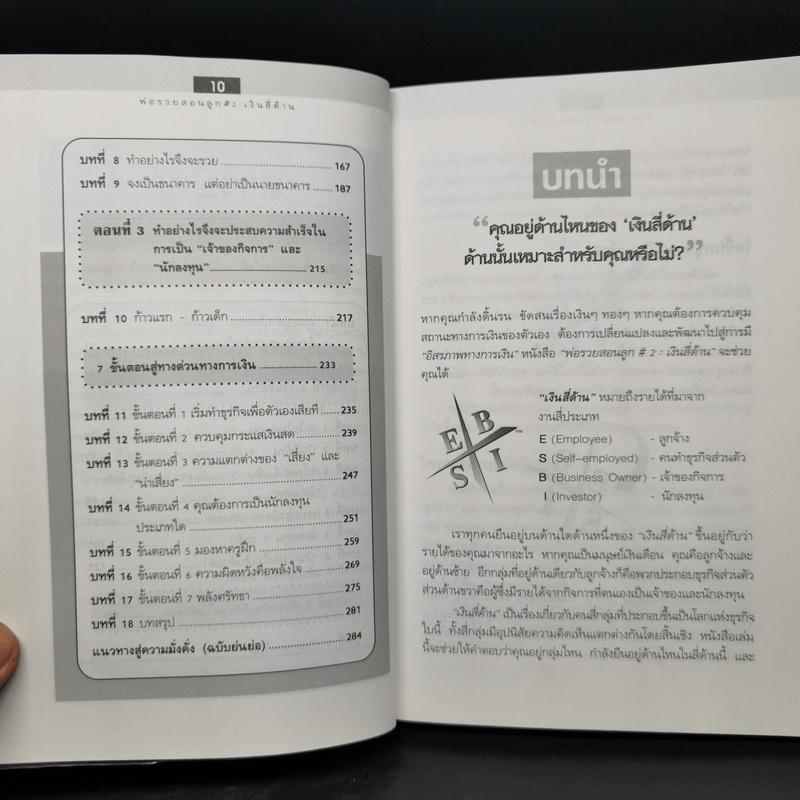 10
พ่อรวยสอนลูก # 2 : เงินสี่ด้าน
บทที่ 8 ทำอย่างไรจึงจะรวย ........ 167
บทที่ 9 จงเป็นธนาคาร แต่อย่าเป็นนายธนาคาร ...... 187
ตอนที่ 3 ทำอย่างไรจึงจะประสบความสำเร็จใน
การเป็น "เจ้าของกิจการ" และ
"นักลงทุน" ........ 215
บทที่ 10 ก้าวแรก - ก้าวเด็ก ........ 217
7 ขั้นตอนสู่ทางด่วนทางการเงิน ........ 233
บทที่ 11 ขั้นตอนที่ 1 เริ่มทำธุรกิจเพื่อตัวเองเสียที ...... 235
บทที่ 12 ขั้นตอนที่ 2 ควบคุมกระแสเงินสด ........ 239
บทที่ 13 ขั้นตอนที่ 3 ความแตกต่างของ "เสี่ยง" และ
"น่าเสี่ยง" ........ 247
บทที่ 14 ขั้นตอนที่ 4 คุณต้องการเป็นนักลงทุน
ประเภทใด ........ 251
บทที่ 15 ขั้นตอนที่ 5 มองหาครูฝึก ........ 259
บทที่ 16 ขั้นตอนที่ 6 ความผิดหวังคือพลังใจ ........ 269
บทที่ 17 ขั้นตอนที่ 7 พลังศรัทธา ........ 275
บทที่ 18 บทสรุป ........ 281
แนวทางสู่ความมั่งคั่ง (ฉบับย่นย่อ) ........ 284
บทนำ
"คุณอยู่ด้านไหนของ 'เงินสี่ด้าน'
ด้านนั้นเหมาะสำหรับคุณหรือไม่?"
หากคุณกำลังดิ้นรน ขัดสนเรื่องเงินๆ ทองๆ หากคุณต้องการควบคุม
สถานะทางการเงินของตัวเอง ต้องการเปลี่ยนแปลงและพัฒนาไปสู่การมี
"อิสรภาพทางการเงิน" หนังสือ "พ่อรวยสอนลูก # 2 : เงินสี่ด้าน" จะช่วย
คุณได้
"เงินสี่ด้าน" หมายถึงรายได้ที่มาจาก
งานสี่ประเภท
E B
S I
™
E (Employee) - ลูกจ้าง
S (Self-employed) - คนทำธุรกิจส่วนตัว
B (Business Owner) - เจ้าของกิจการ
I (Investor) - นักลงทุน
เราทุกคนยืนอยู่บนด้านใดด้านหนึ่งของ "เงินสี่ด้าน" ขึ้นอยู่กับว่า
รายได้ของคุณมาจากอะไร หากคุณเป็นมนุษย์เงินเดือน คุณคือลูกจ้างและ
อยู่ด้านซ้าย อีกกลุ่มที่อยู่ด้านเดียวกับลูกจ้างก็คือพวกประกอบธุรกิจส่วนตัว
ส่วนด้านขวาคือผู้ซึ่งมีรายได้จากกิจการที่ตนเองเป็นเจ้าของและนักลงทุน
"เงินสี่ด้าน" เป็นเรื่องเกี่ยวกับคนสี่กลุ่มที่ประกอบขึ้นเป็นโลกแห่งธุรกิจ
ใบนี้ ทั้งสี่กลุ่มมีอุปนิสัยความคิดเห็นแตกต่างกันโดยสิ้นเชิง หนังสือเล่ม
นี้จะช่วยให้คำตอบว่าคุณอยู่กลุ่มไหน กำลังยืนอยู่ด้านไหนในสี่ด้านนี้ และ